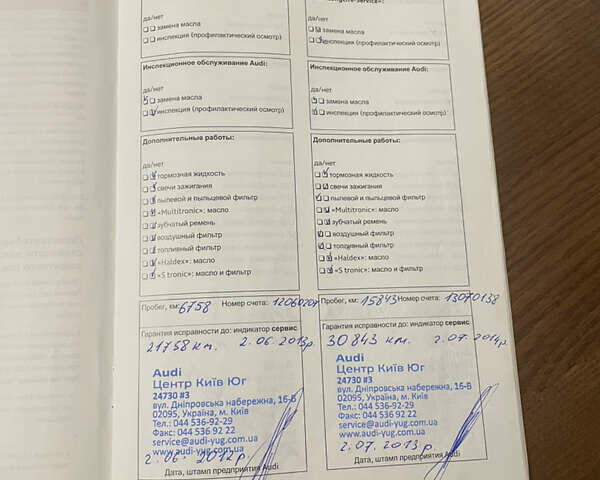 да/нет
замена масла
инспекция (профилактический осмотр)
Инспекционное обслуживание Audi:
да/нет
замена масла
инспекция (профилактический осмотр)
Дополнительные работы:
да/нет
тормозная жидкость
свечи зажигания
пылевой и пыльцевой фильтр
«Multitronic»: масло
зубчатый ремень
воздушный фильтр
топливный фильтр
«Haldex»: масло
«S tronic»: масло и фильтр
Пробег, км: 6758 Номер счета: 12060201
Гарантия исправности до: индикатор сервис
21758 км. 2.06.2013р
Audi
Центр Київ Юг
24730 #3
вул. Дніпровська набережна, 16-В
02095, Україна, м. Київ
Тел.: 044 536-92-29
Факс: 044 536 92 22
service@audi-yug.com.ua
www.audi-yug.com.ua
2.06.2012р
Дата, штамп предприятия Audi
да/нет
замена масла
инспекция (профилактический осмотр)
Инспекционное обслуживание Audi:
да/нет
замена масла
инспекция (профилактический осмотр)
Дополнительные работы:
да/нет
тормозная жидкость
свечи зажигания
пылевой и пыльцевой фильтр
«Multitronic»: масло
зубчатый ремень
воздушный фильтр
топливный фильтр
«Haldex»: масло
«S tronic»: масло и фильтр
Пробег, км: 15843 Номер счета: 13070138
Гарантия исправности до: индикатор сервис
30843 км. 2.07.2014р.
Audi
Центр Київ Юг
24730 #3
вул. Дніпровська набережна, 16-В
02095, Україна, м. Київ
Тел.: 044 536-92-29
Факс: 044 536 92 22
service@audi-yug.com.ua
www.audi-yug.com.ua
2.07.2013р
Дата, штамп предприятия Audi